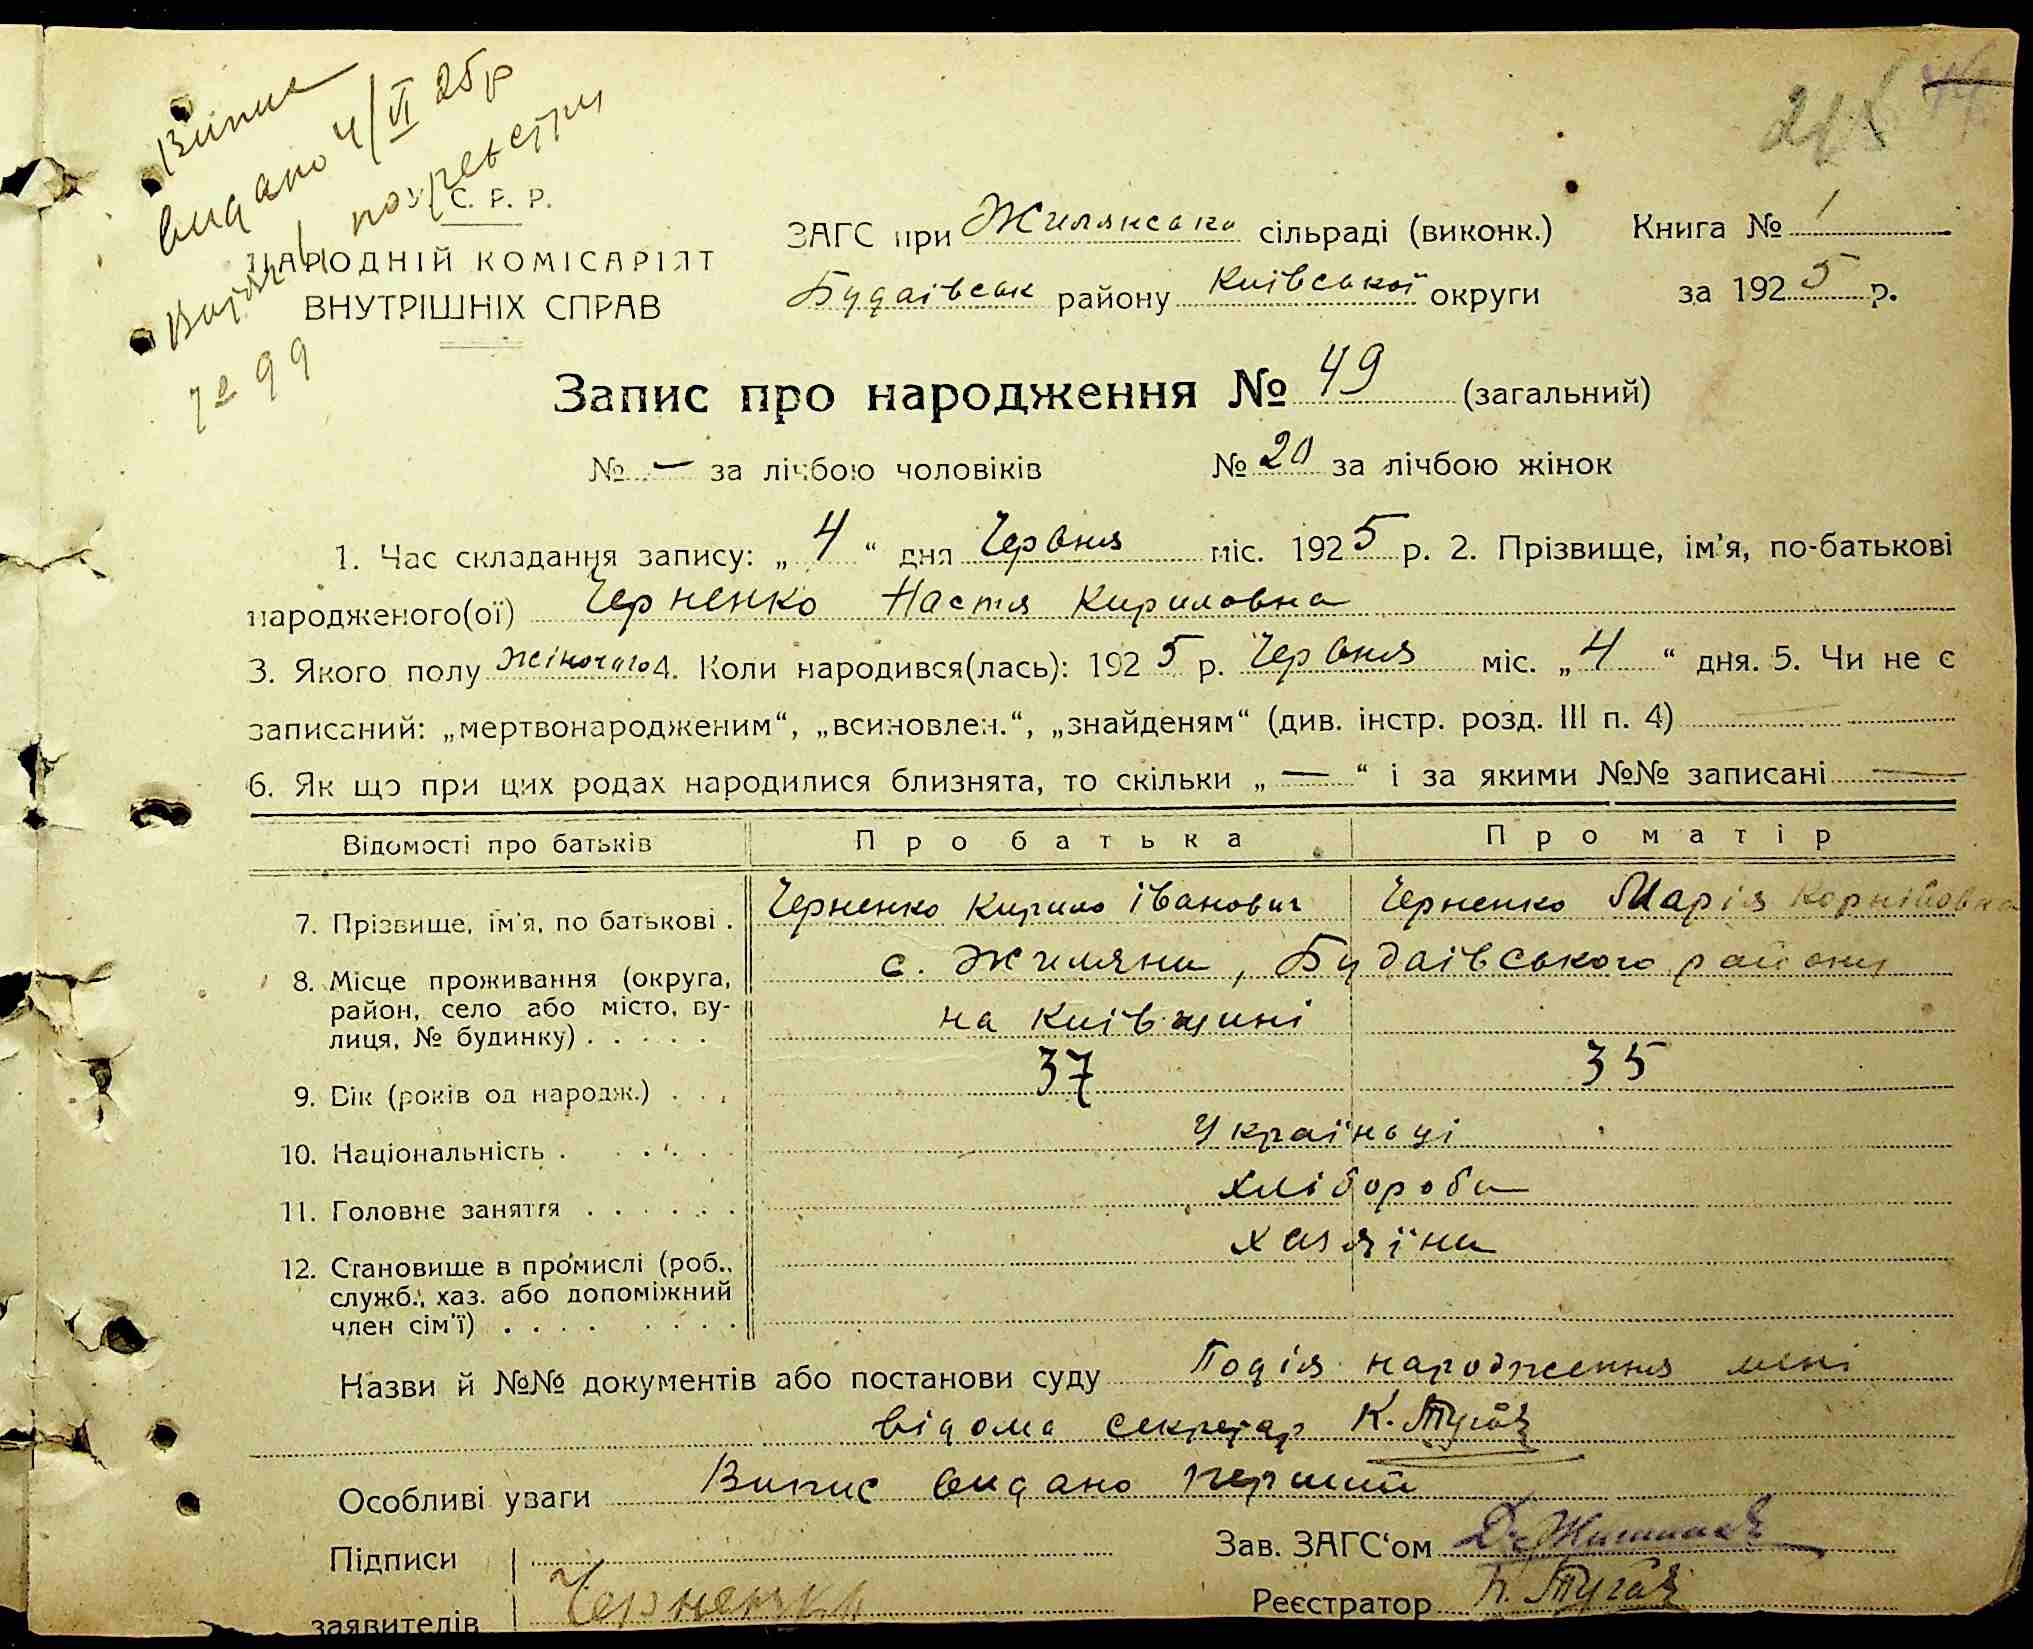 Випис
видано 4/VI 25р
по реєстру
№ 99
У. С. Р. Р.
НАРОДНІЙ КОМІСАРІЯТ
ВНУТРІШНІХ СПРАВ
ЗАГС при Жилянська сільраді (виконк.) Книга № 1
Будаівськ району Київської округи за 1925 р.
Запис про народження № 49 (загальний)
№ — за лічбою чоловіків № 20 за лічбою жінок
1. Час складання запису: „ 4 “ дня Червня міс. 1925 р. 2. Прізвище, ім'я, по-батькові
народженого(ої) Черненко Настя Кириловна
3. Якого полу жіночого 4. Коли народився(лась): 1925 р. Червня міс. „ 4 “ дня. 5. Чи не є
записаний: „мертвонародженим“, „всиновлен.“, „знайденям“ (див. інстр. розд. III п. 4) —
6. Як що при цих родах народилися близнята, то скільки „ — “ і за якими №№ записані —
Відомості про батьків Про батька Про матір
7. Прізвище, ім'я, по батькові . Черненко Кирило Іванович Черненко Марія Корніївна
8. Місце проживання (округа, с. Жиляни, Будаівського району
район, село або місто, ву-
лиця, № будинку) . . . . . на Київщині
9. Вік (років од народж.) . . . 37 35
10. Національність . . . . . Українці
11. Головне заняття . . . . . . хлібороби
12. Становище в промислі (роб., хазяїни
служб., хаз. або допоміжний
член сім'ї) . . . . . . . .
Назви й №№ документів або постанови суду Подія народження мені
відома секретар К. Тугай
Особливі уваги Випис видано перший
Підписи Зав. ЗАГС'ом
заявителів Черненко Реєстратор К. Тугай